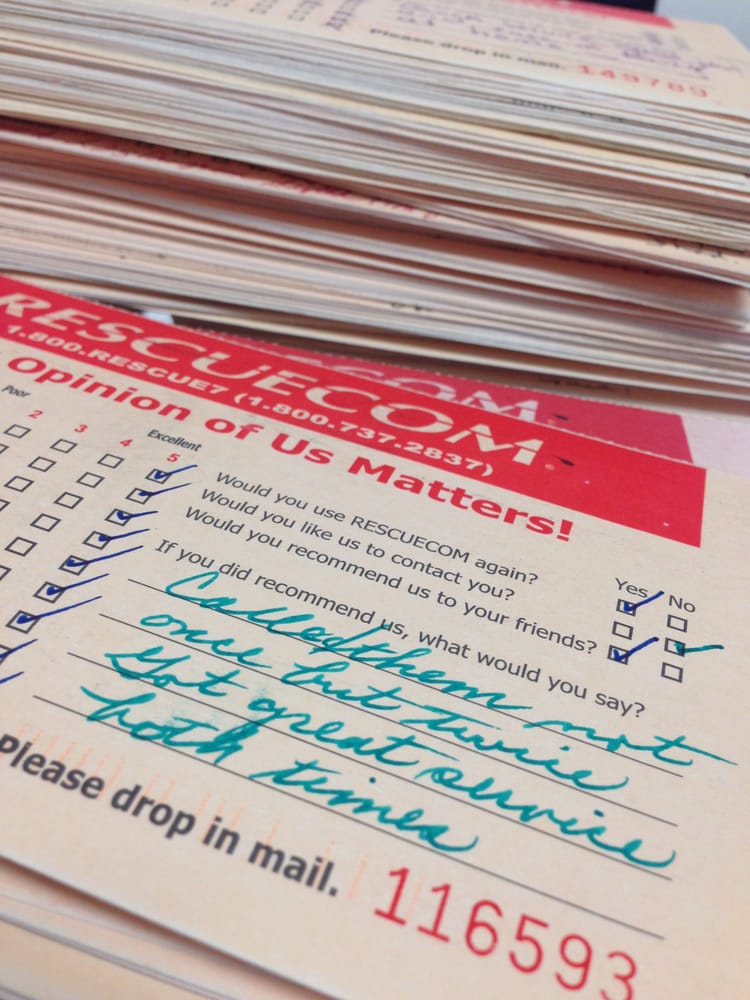 please drop in mail.
149789
RESCUECOM
1.800.RESCUE7 (1.800.737.2837)
Opinion of Us Matters!
Poor
Excellent
2 3 4 5
Would you use RESCUECOM again?
Would you like us to contact you?
Would you recommend us to your friends?
Yes No
If you did recommend us, what would you say?
Called them not
once but twice
Got great service
both times
Please drop in mail.
116593